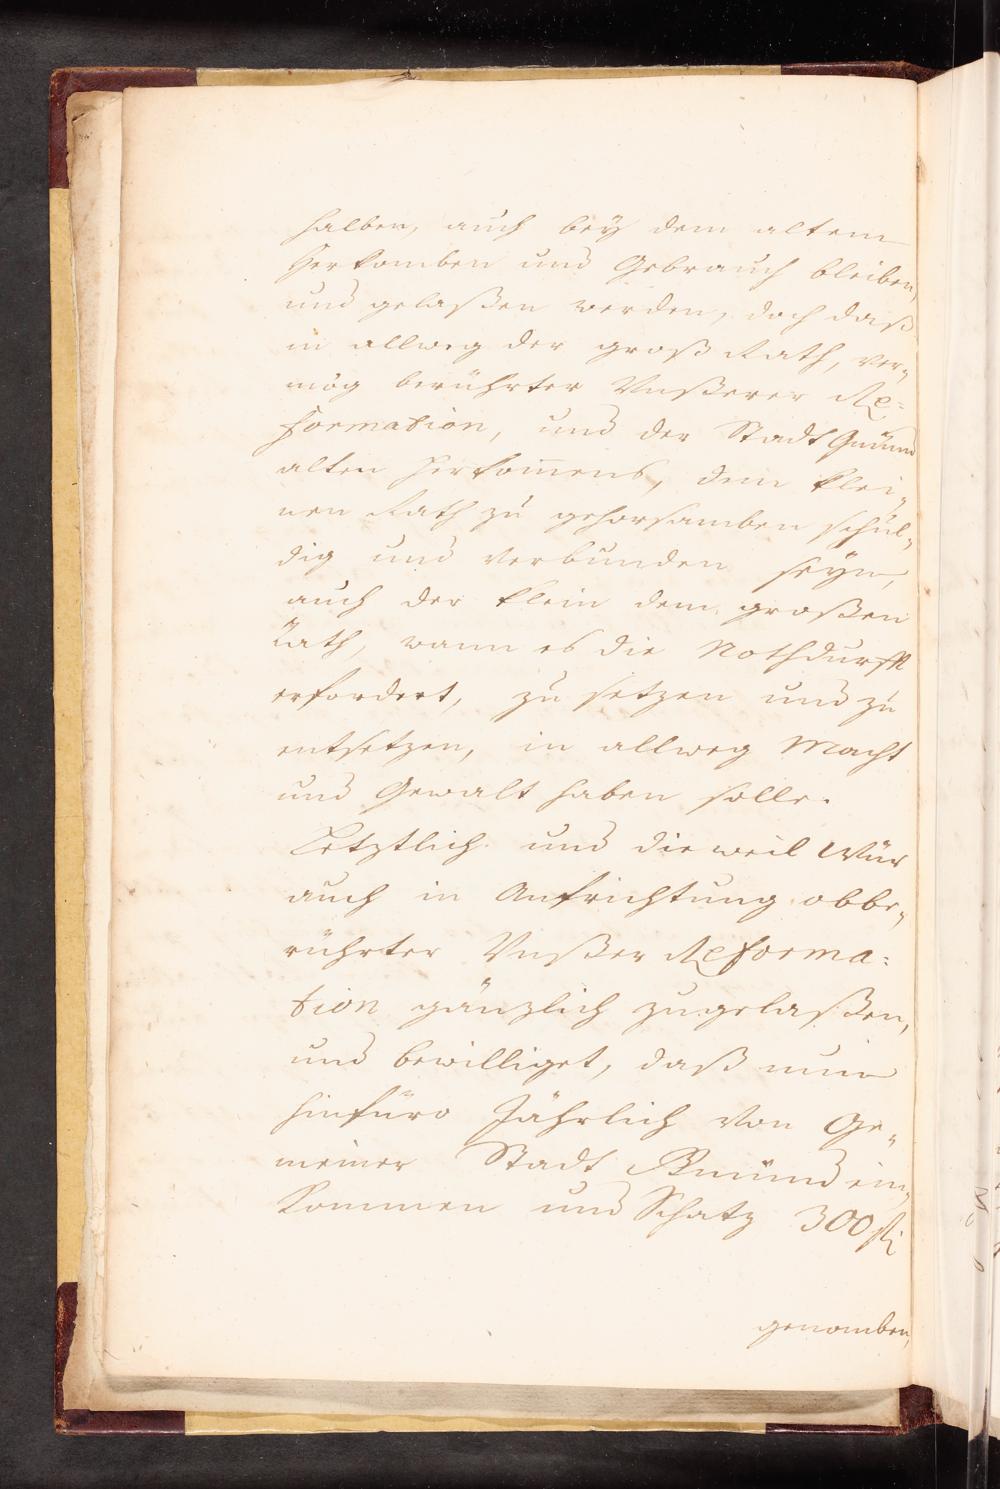 halben, auch bey dem altem
Herkomben und Gebrauch bleiben,
und gelaßen werden, doch daß
in allweg der groß Rath, ver„
mög berührter Vnßerer Re=
formation, und der Stadt Gmünd
alten Herkom̄ens, dem klei„
nen Rath zu gehorsamben schul„
dig und verbunden seyn,
auch der klein dem großen
Rath, wann es die Nothdurfft
erfordert, zu setzen und zu
entsetzen, in allweg Macht
und Gewalt haben solle.
Letztlich und dieweil Wür
auch in Aufrichtung obbe„
rührter Vnßer Reforma=
tion gänzlich zugelaßen,
und bewilliget, daß nun
hinfüro Jährlich von Ge„
meiner Stadt Gmünd ein„
kommen und Schatz 300 fl
genomben,